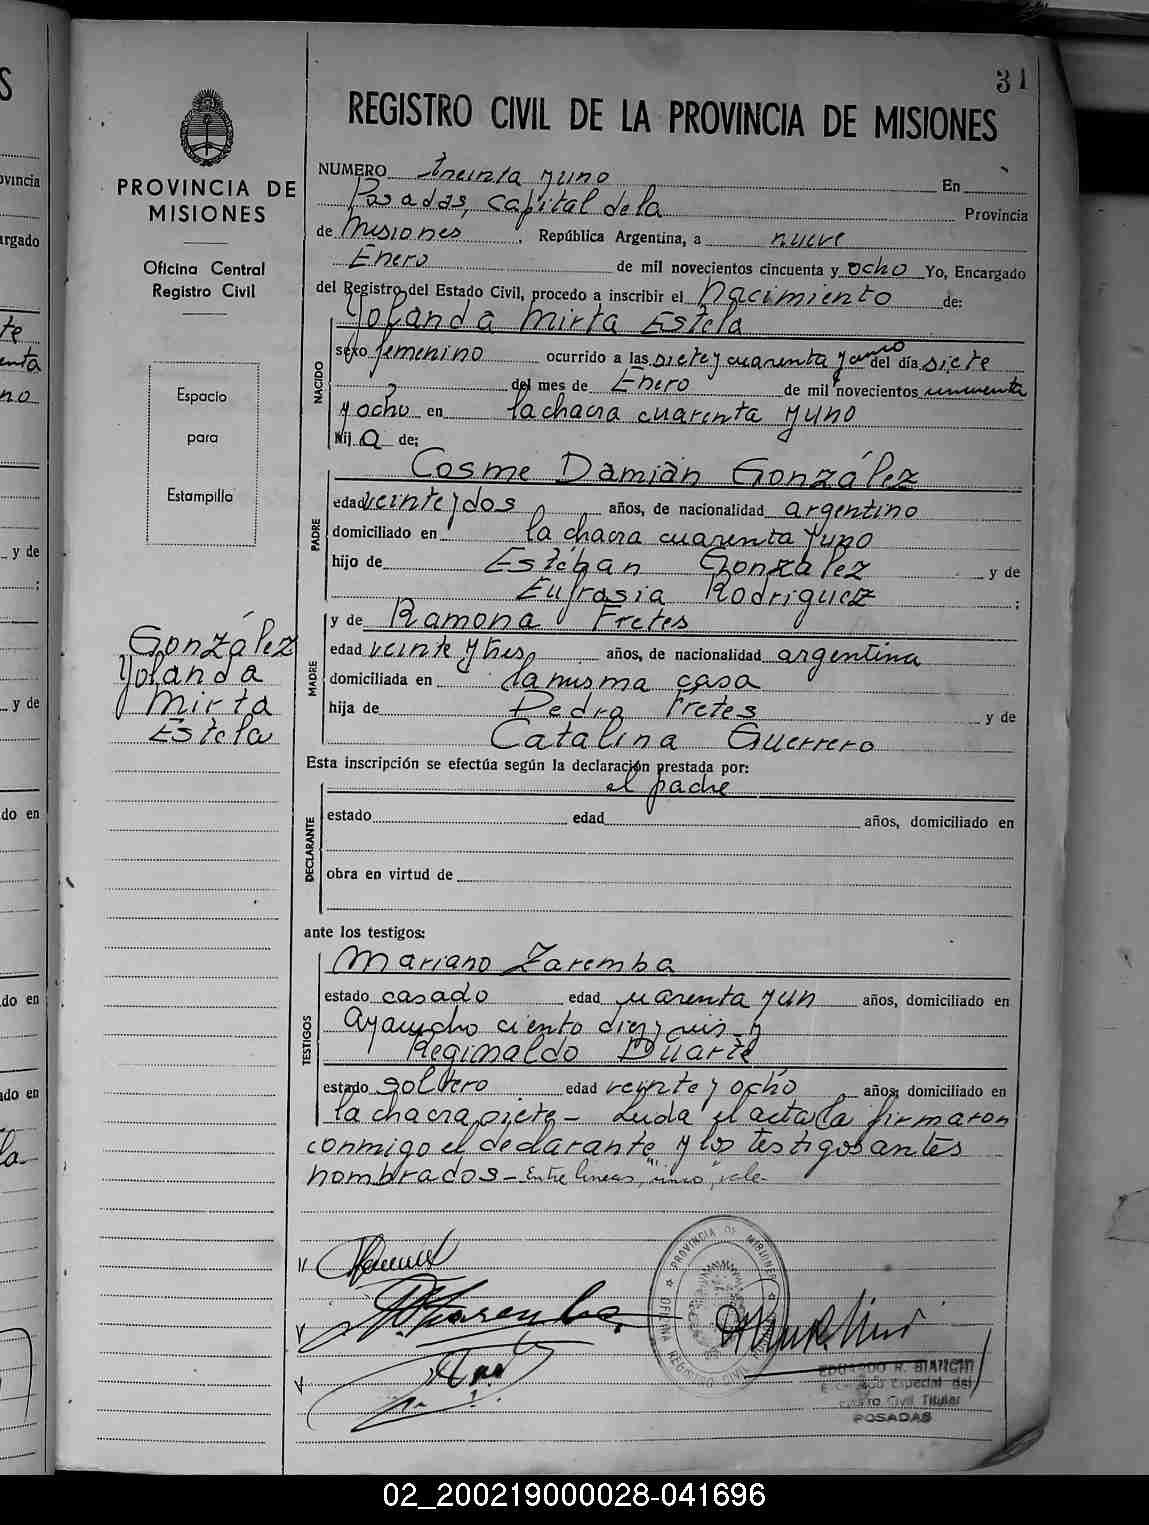 31
REGISTRO CIVIL DE LA PROVINCIA DE MISIONES
PROVINCIA DE
MISIONES
Oficina Central
Registro Civil
Espacio
para
Estampilla
González
Yolanda
Mirta
Estela
NUMERO treinta y uno En
Posadas, capital de la Provincia
de Misiones, República Argentina, a nueve
Enero de mil novecientos cincuenta y ocho Yo, Encargado
del Registro del Estado Civil, procedo a inscribir el nacimiento de:
Yolanda Mirta Estela
NACIDO
sexo femenino ocurrido a las siete y cuarenta y cinco del día siete
del mes de Enero de mil novecientos cincuenta
y ocho en la chacra cuarenta y uno
hij a de:
PADRE
Cosme Damián González
edad veinte y dos años, de nacionalidad argentino
domiciliado en la chacra cuarenta y uno
hijo de Estéban González y de
Eufrasia Rodriguez ;
MADRE
y de Ramona Fretes
edad veinte y tres años, de nacionalidad argentina
domiciliada en la misma casa
hija de Pedro Fretes y de
Catalina Guerrero
Esta inscripción se efectúa según la declaración prestada por:
el padre
DECLARANTE
estado edad años, domiciliado en
obra en virtud de
ante los testigos:
TESTIGOS
Mariano Zaremba
estado casado edad cuarenta y un años, domiciliado en
Ayacucho ciento diez y seis y
Reginaldo Duarte
estado soltero edad veinte y ocho años, domiciliado en
la chacra siete - Leida el acta la firmaron
conmigo el declarante y los testigos antes
nombrados - Entre lineas, "cinco", vale-
PROVINCIA DE MISIONES
OFICINA REGISTRO CIVIL
EDUARDO R. BIANCHI
Encargado Especial del
Registro Civil Titular
POSADAS
02_200219000028-041696